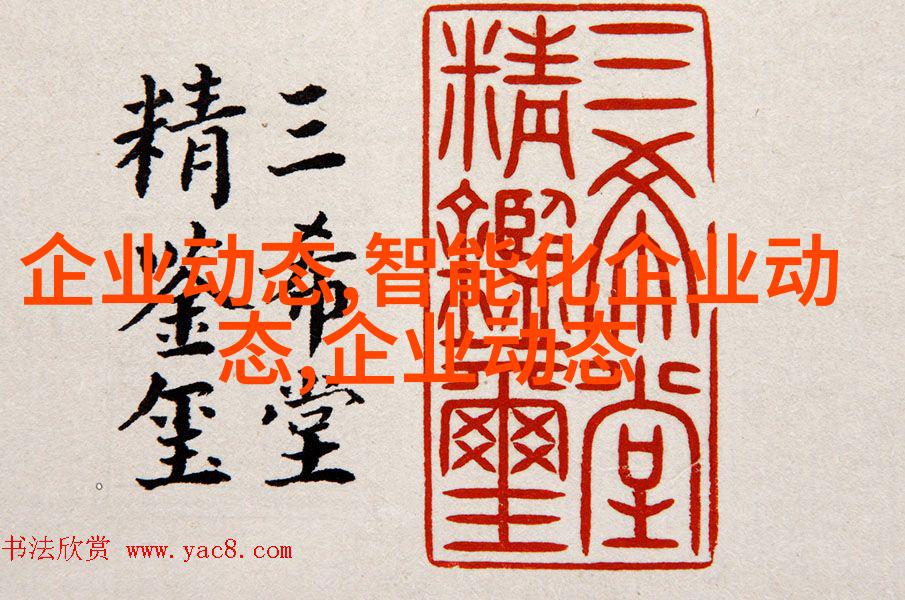 三希堂
精鉴玺
三希堂
精鑑璽
企业动态,智能化企业动
态,企业动态
书法欣赏 www.yac8.com